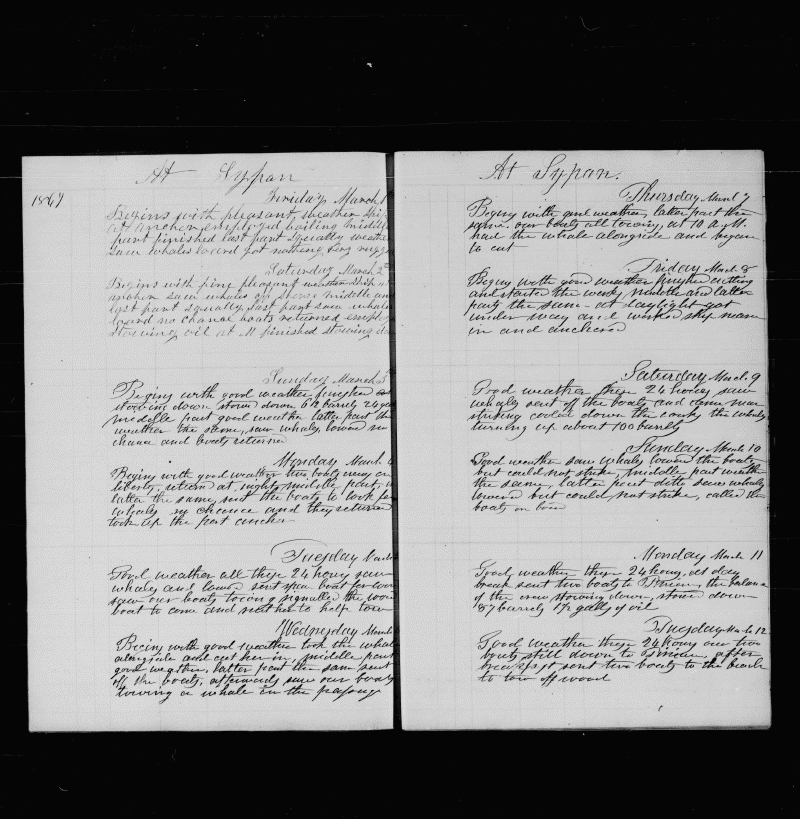 At Sypan
1867
Friday March 1
Begins with pleasant weather ship
at anchor employed boiling middle
part finished last part squally weather
saw whales lowered got nothing, being rugged
Saturday March 2
Begins with fine pleasant weather ship
anchor saw whales off shore middle and
last part squally, last part saw whales
lowered no chance boats returned employed
stowing oil at M finished stowing down
Sunday March 3
Begins with good weather finished
stowing down stowed down 62 barrels 24
middle part good weather latter part the
weather the same, saw whales lowered no
chance and boats returned
Monday March 4
Begins with good weather two boats away on
liberty, return at night, middle part,
latter the same, sent the boats to look for
whales no chance and they returned
took up the port anchor
Tuesday March
Good weather all these 24 hours saw
whales and lowered sent boat for wood
saw our boats towing signalled the wood
boat to come and sent her to help tow
Wednesday March
Begins with good weather took the whale
alongside and cut her in middle part
good weather, latter part the same sent
off the boats, afterwards saw our boats
towing a whale in the passage
At Sypan.
Thursday March 7
Begins with good weather latter part the
same, our boats all towing, at 10 A.M.
had the whale alongside and began
to cut
Friday March 8
Begins with good weather finished cutting
and started the works, middle and latter
part the same - at daylight got
under way and worked ship nearer
in and anchored
Saturday March 9
Good weather these 24 hours saw
whales sent off the boats and came near
striking cooled down the works the whale
turning up about 100 barrels
Sunday March 10
Good weather saw whales lowered the boats
but could not strike, middle part weather
the same, latter part ditto saw whales
lowered but could not strike, called the
boats on board
Monday March 11
Good weather these 24 hours, at day
break sent two boats to the balance
of the crew stowing down, stowed down
87 barrels 17½ galls of oil
Tuesday March 12
Good weather these 24 hours our two
boats still down to after
breakfast sent two boats to the beach
to tow off wood